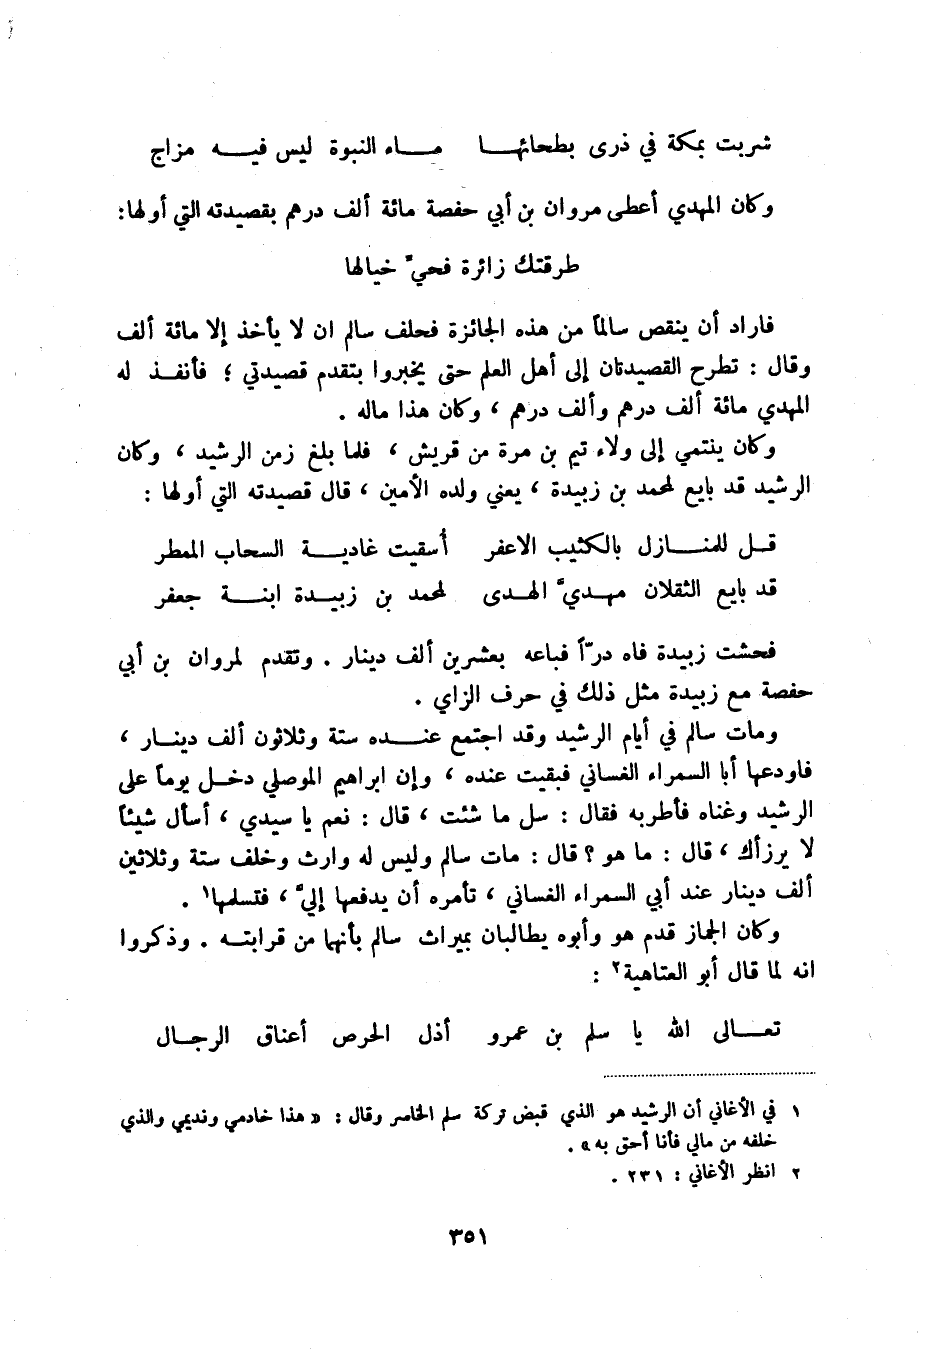 شربت بمكة في ذرى بطحائهـــا مـــاء النبوة ليس فيـــه مزاج
وكان المهدي أعطى مروان بن أبي حفصة مائة ألف درهم بقصيدته التي أولها:
طرقتك زائرة فحيّ خيالها
فاراد أن ينقص سالماً من هذه الجائزة فحلف سالم ان لا يأخذ إلا مائة ألف
وقال : تطرح القصيدتان إلى أهل العلم حتى يخبروا بتقدم قصيدتي ؛ فأنفـــذ له
المهدي مائة ألف درهم وألف درهم ، وكان هذا ماله .
وكان ينتمي إلى ولاء تيم بن مرة من قريش ، فلما بلغ زمن الرشيد ، وكان
الرشيد قد بايع لمحمد بن زبيدة ، يعني ولده الأمين ، قال قصيدته التي أولها :
قـــل للمنـــازل بالكثيب الاعفر أُسقيت غاديـــة السحاب الممطر
قد بايع الثقلان مهـديَّ الهـدى لمحمد بن زبيـــدة ابنـــة جعفر
فحشت زبيدة فاه درّاً فباعه بعشرين ألف دينار . وتقدم لمروان بن أبي
حفصة مع زبيدة مثل ذلك في حرف الزاي .
ومات سالم في أيام الرشيد وقد اجتمع عنـــده ستة وثلاثون ألف دينـــار ،
فاودعها أبا السمراء الغساني فبقيت عنده ، وإن ابراهيم الموصلي دخـل يوماً على
الرشيد وغناه فأطربه فقال : سل ما شئت ، قال : نعم يا سيدي ، أسأل شيئاً
لا يرزأك ، قال : ما هو ؟ قال : مات سالم وليس له وارث وخلف ستة وثلاثين
ألف دينار عند أبي السمراء الغساني ، تأمره أن يدفعها إليَّ ، فتسلمها١ .
وكان الجماز قدم هو وأبوه يطالبان بميراث سالم بأنهما من قرابتـــه . وذكروا
انه لما قال أبو العتاهية٢ :
تعـــالى الله يا سلم بن عمرو أذل الحرص أعناق الرجـال
١ في الأغاني أن الرشيد هو الذي قبض تركة سلم الخاسر وقال : « هذا خادمي ونديمي والذي
خلفه من مالي فأنا أحق به » .
٢ انظر الأغاني : ٢٣١ .
٣٥١